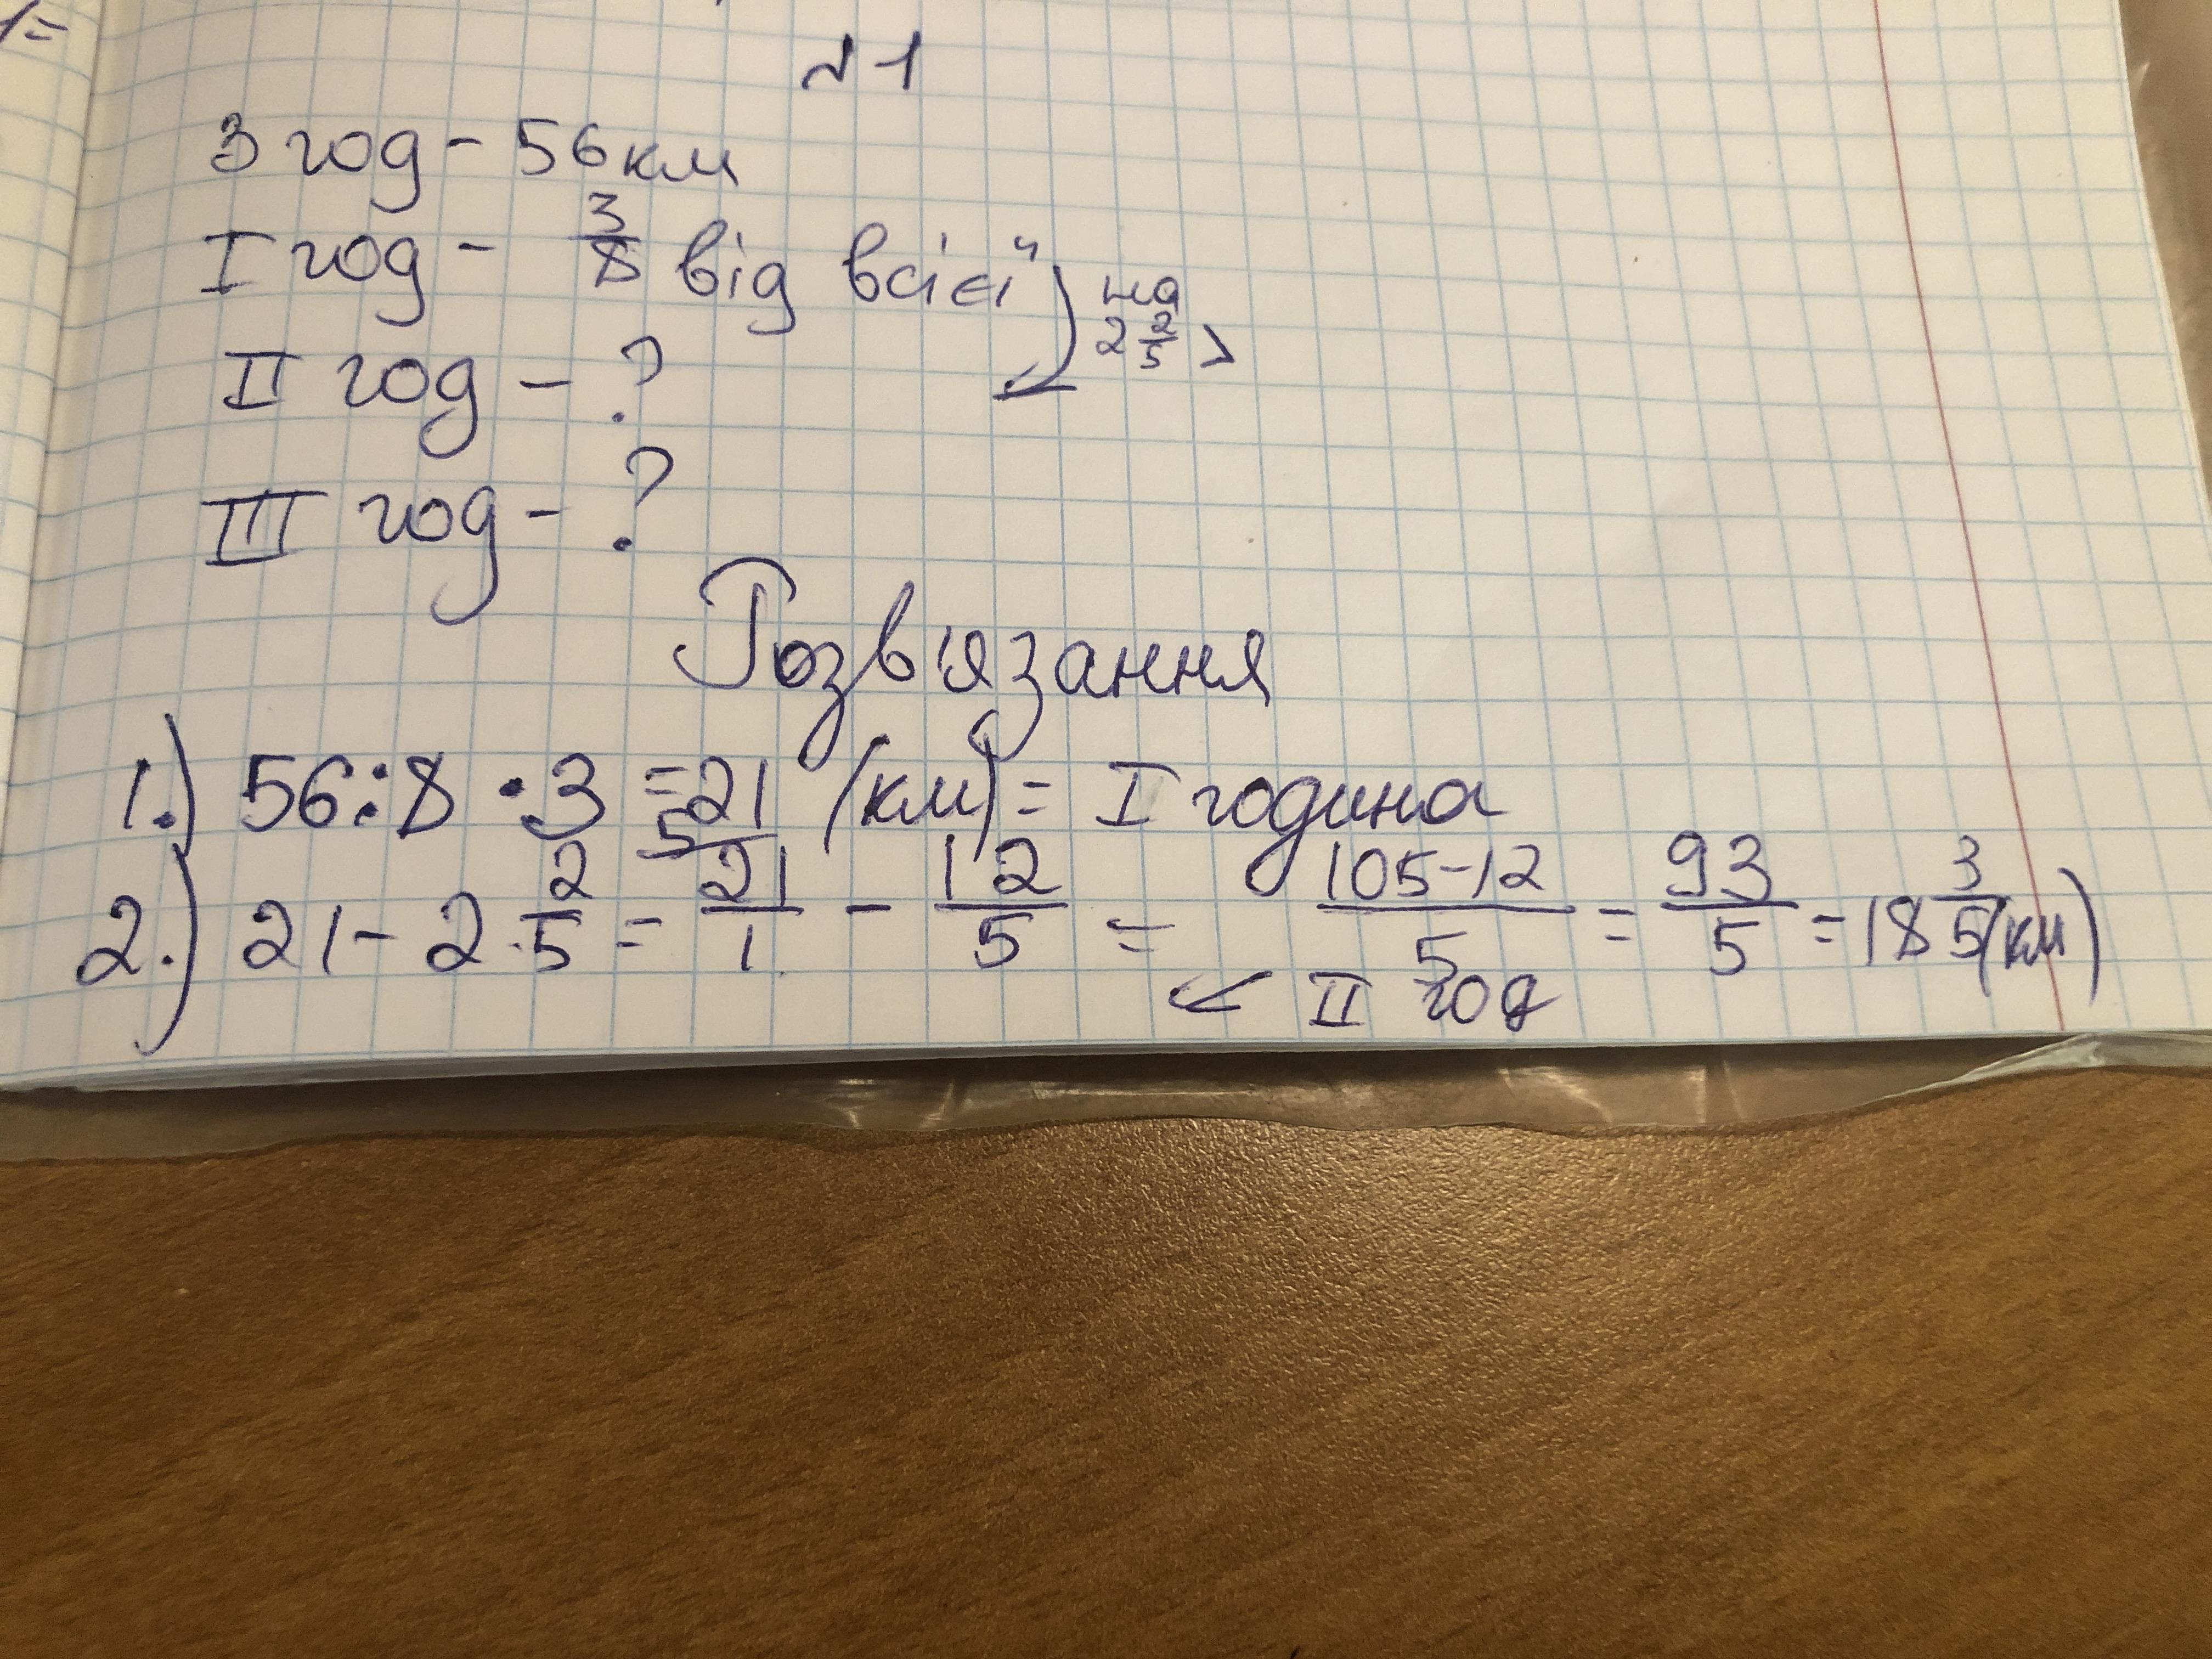 1=
№1
3 год - 56 км
I год - 3/8 від всієї на 2 2/5 >
II год - ?
III год - ?
Розв'язання
1.) 56:8·3=21 (км)= I година
2.) 21-2 2/5 = 5/ 21/1 - 12/5 = 105-12/5 = 93/5 = 18 3/5 (км)
II год